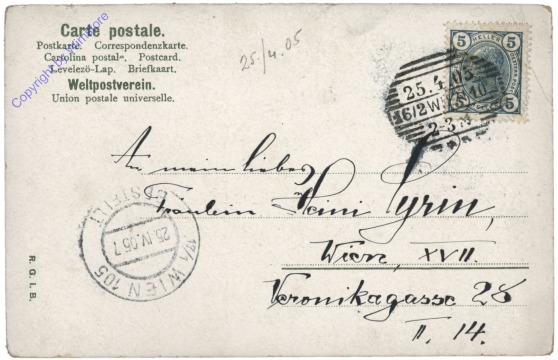 Carte postale.
Postkarte. Correspondenzkarte.
Cartolina postale. Postcard.
Levelező-Lap. Briefkaart.
Weltpostverein.
Union postale universelle.
Copyright by
25./4.05
5 HELLER 5
5 5
25.4.05
16/2 WIEN 110
2-3.N
An mein liebes
Fräulein Heini Pyrin,
Wien, XVII.
Veronikagasse 28
II. 14.
17/1 WIEN 105
25.IV.05.7
BESTELLT
R. G. I. B.